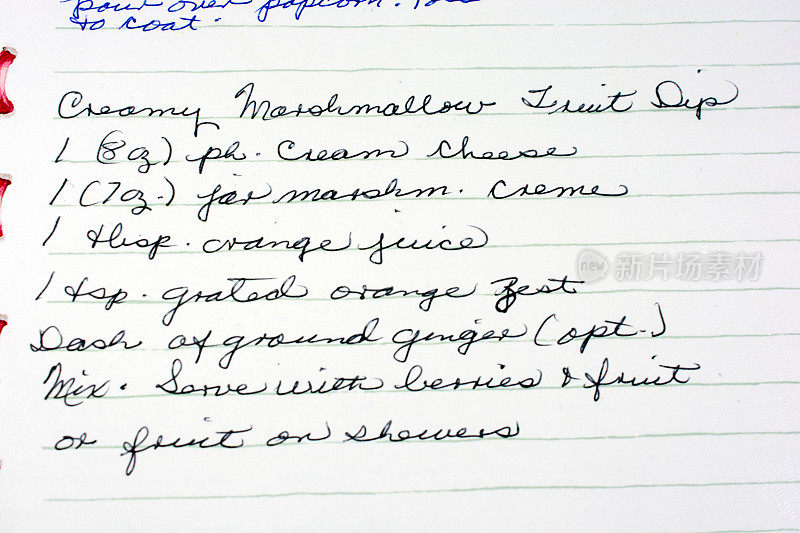 pour over popcorn. Toss
to coat.
Creamy Marshmallow Fruit Dip
1 (8oz) ph. Cream Cheese
1 (7oz.) jar marshm. Creme
1 tbsp. orange juice
1 tsp. grated orange zest
Dash of ground ginger (opt.)
Mix. Serve with berries & fruit
or fruit on skewers
new 新片场素材